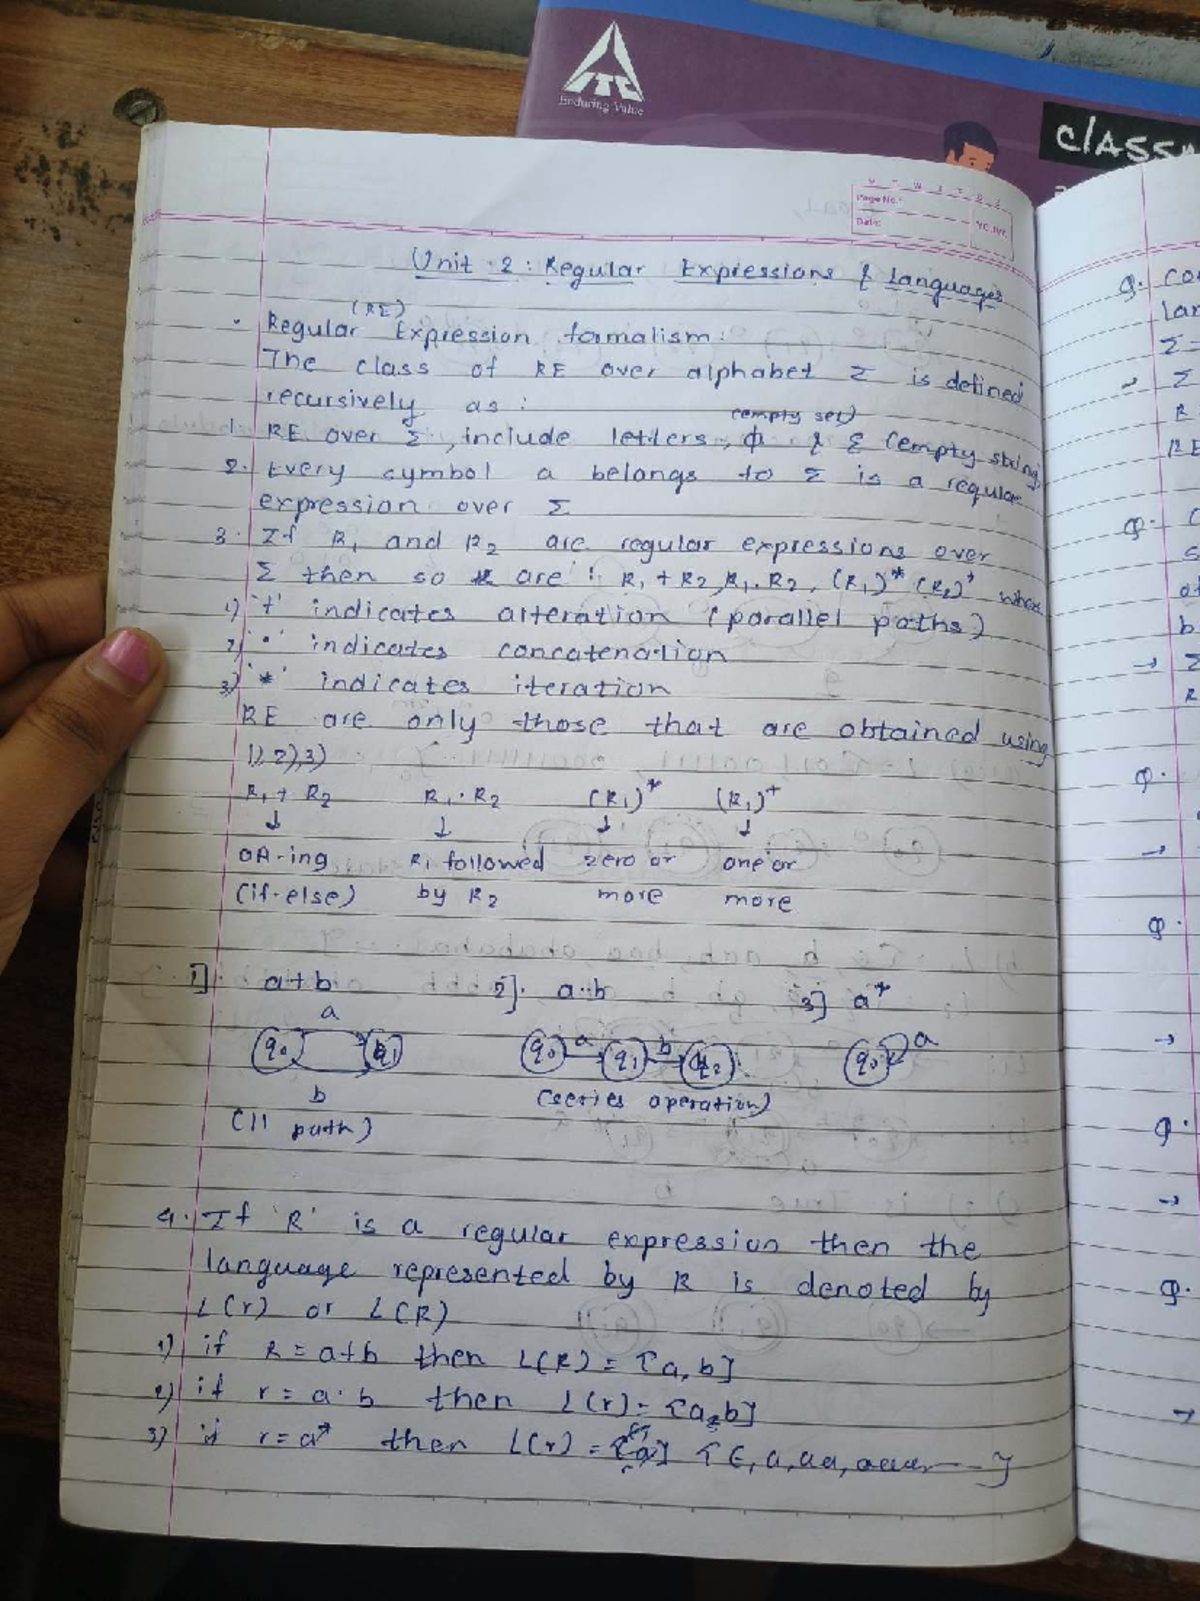 ITC
Enduring Value
CLASSM
Page No.:
Date:
YOUVA
Unit : 2 : Regular Expressions & Languages
(RE)
• Regular Expression formalism :
The class of RE over alphabet Σ is defined
recursively as :
(empty set)
1. RE over Σ, include letters, ϕ & ε (empty string
2. Every symbol a belongs to Σ is a regular
expression over Σ
3. If R₁ and R₂ are regular expressions over
Σ then so are : R₁ + R₂, R₁.R₂, (R₁)* (R₁)⁺ where
1) '+' indicates alteration (parallel paths)
2) '•' indicates concatenation
3) '*' indicates iteration
RE are only those that are obtained using
1), 2), 3)
R₁ + R₂ R₁ . R₂ (R₁)* (R₁)⁺
↓ ↓ ↓ ↓
OR-ing R₁ followed zero or one or
(if-else) by R₂ more more
1]. a+b 2]. a.b 3] a*
a
q₀ q₁ q₀ a q₁ b q₂ q₀ a
b (series operation)
(11 path)
4. If 'R' is a regular expression then the
language represented by R is denoted by
L(r) or L(R)
1) if R = a+b then L(R) = {a, b}
2) if r = a.b then L(r) = {a.b}
3) if r = a* then L(r) = {ε, a, aa, aaa, --- }
Q. con
lan
Σ =
Σ
R
RE
Q.
b
→ Σ
R
Q.
→
Q.
→
Q.
→
Q.
→